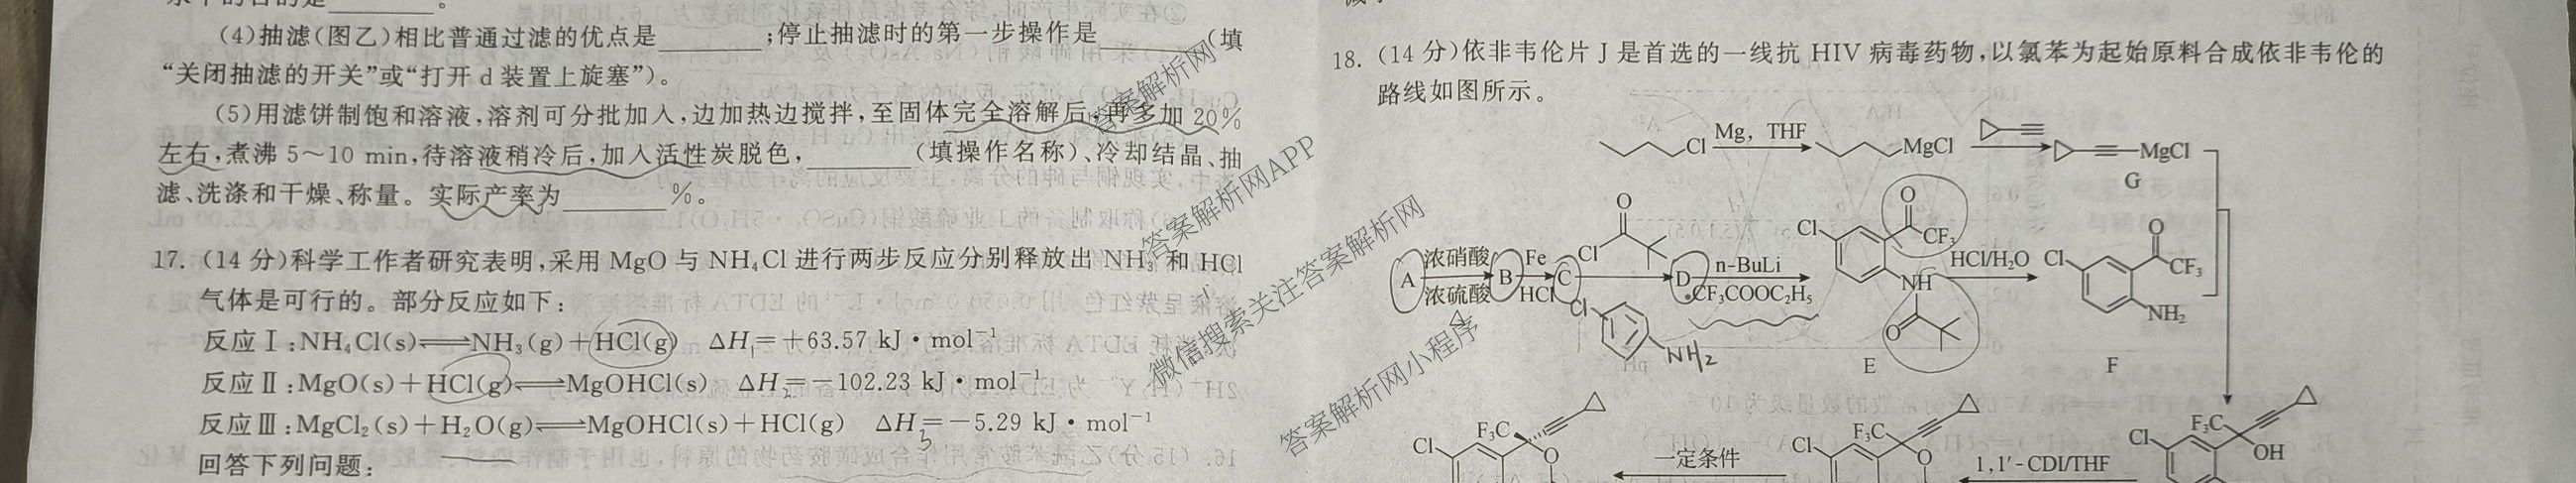 (4)抽滤(图乙)相比普通过滤的优点是________;停止抽滤时的第一步操作是________(填
“关闭抽滤的开关”或“打开 d 装置上旋塞”)。
(5)用滤饼制饱和溶液,溶剂可分批加入,边加热边搅拌,至固体完全溶解后,再多加 20%
左右,煮沸 5~10 min,待溶液稍冷后,加入活性炭脱色,________(填操作名称)、冷却结晶、抽
滤、洗涤和干燥、称量。实际产率为________%。
17. (14 分)科学工作者研究表明,采用 MgO 与 NH₄Cl 进行两步反应分别释放出 NH₃ 和 HCl
气体是可行的。部分反应如下:
反应Ⅰ:NH₄Cl(s)⇌NH₃(g)+HCl(g) ΔH₁=+63.57 kJ·mol⁻¹
反应Ⅱ:MgO(s)+HCl(g)⇌MgOHCl(s) ΔH₂=-102.23 kJ·mol⁻¹
反应Ⅲ:MgCl₂(s)+H₂O(g)⇌MgOHCl(s)+HCl(g) ΔH₃=-5.29 kJ·mol⁻¹
回答下列问题:
18. (14 分)依非韦伦片 J 是首选的一线抗 HIV 病毒药物,以氯苯为起始原料合成依非韦伦的
路线如图所示。
Cl Mg, THF MgCl MgCl
G
O
Cl
A 浓硝酸 浓硫酸 B Fe HCl C D n-BuLi CF₃COOC₂H₅
Cl O CF₃ NH O
E
HCl/H₂O
Cl O CF₃ NH₂
F
Cl NH₂
Cl F₃C O
一定条件
Cl F₃C O
1,1′-CDI/THF
Cl F₃C OH
答案解析网
答案解析网APP
微信搜索关注答案解析网
答案解析网小程序